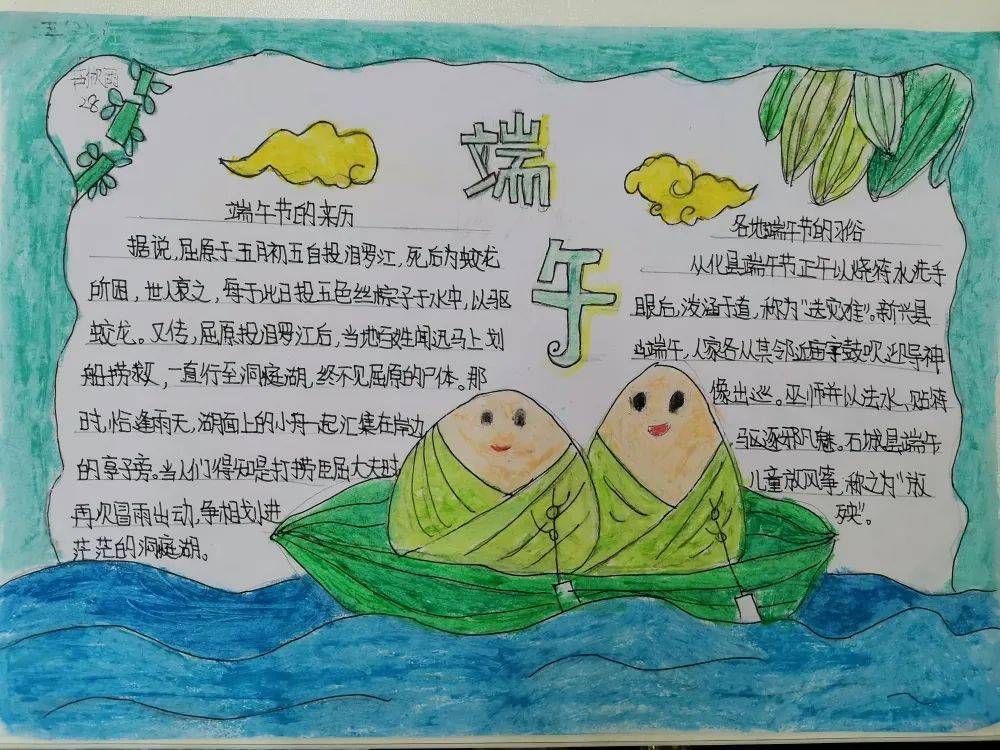 28
端午
端午节的来历
据说,屈原于五月初五自投汨罗江,死后为蛟龙
所困,世人哀之,每于此日投五色丝粽子于水中,以驱
蛟龙。又传,屈原投汨罗江后,当地百姓闻讯马上划
船捞救,一直行至洞庭湖,终不见屈原的尸体。那
时,恰逢雨天,湖面上的小舟一起汇集在岸边
的亭子旁。当人们得知是打捞臣屈大夫时
再次冒雨出动,争相划进
茫茫的洞庭湖。
各地端午节的习俗
从化县端午节正午以烧符水洗手
眼后,泼洒于道,称为"送灾难"。新兴县
当端午,人家各从其邻近庙宇鼓吹迎导神
像出巡。巫师并以法水、贴符
驱逐邪凡魅。石城县端午
儿童放风筝,称之为"放
殃"。